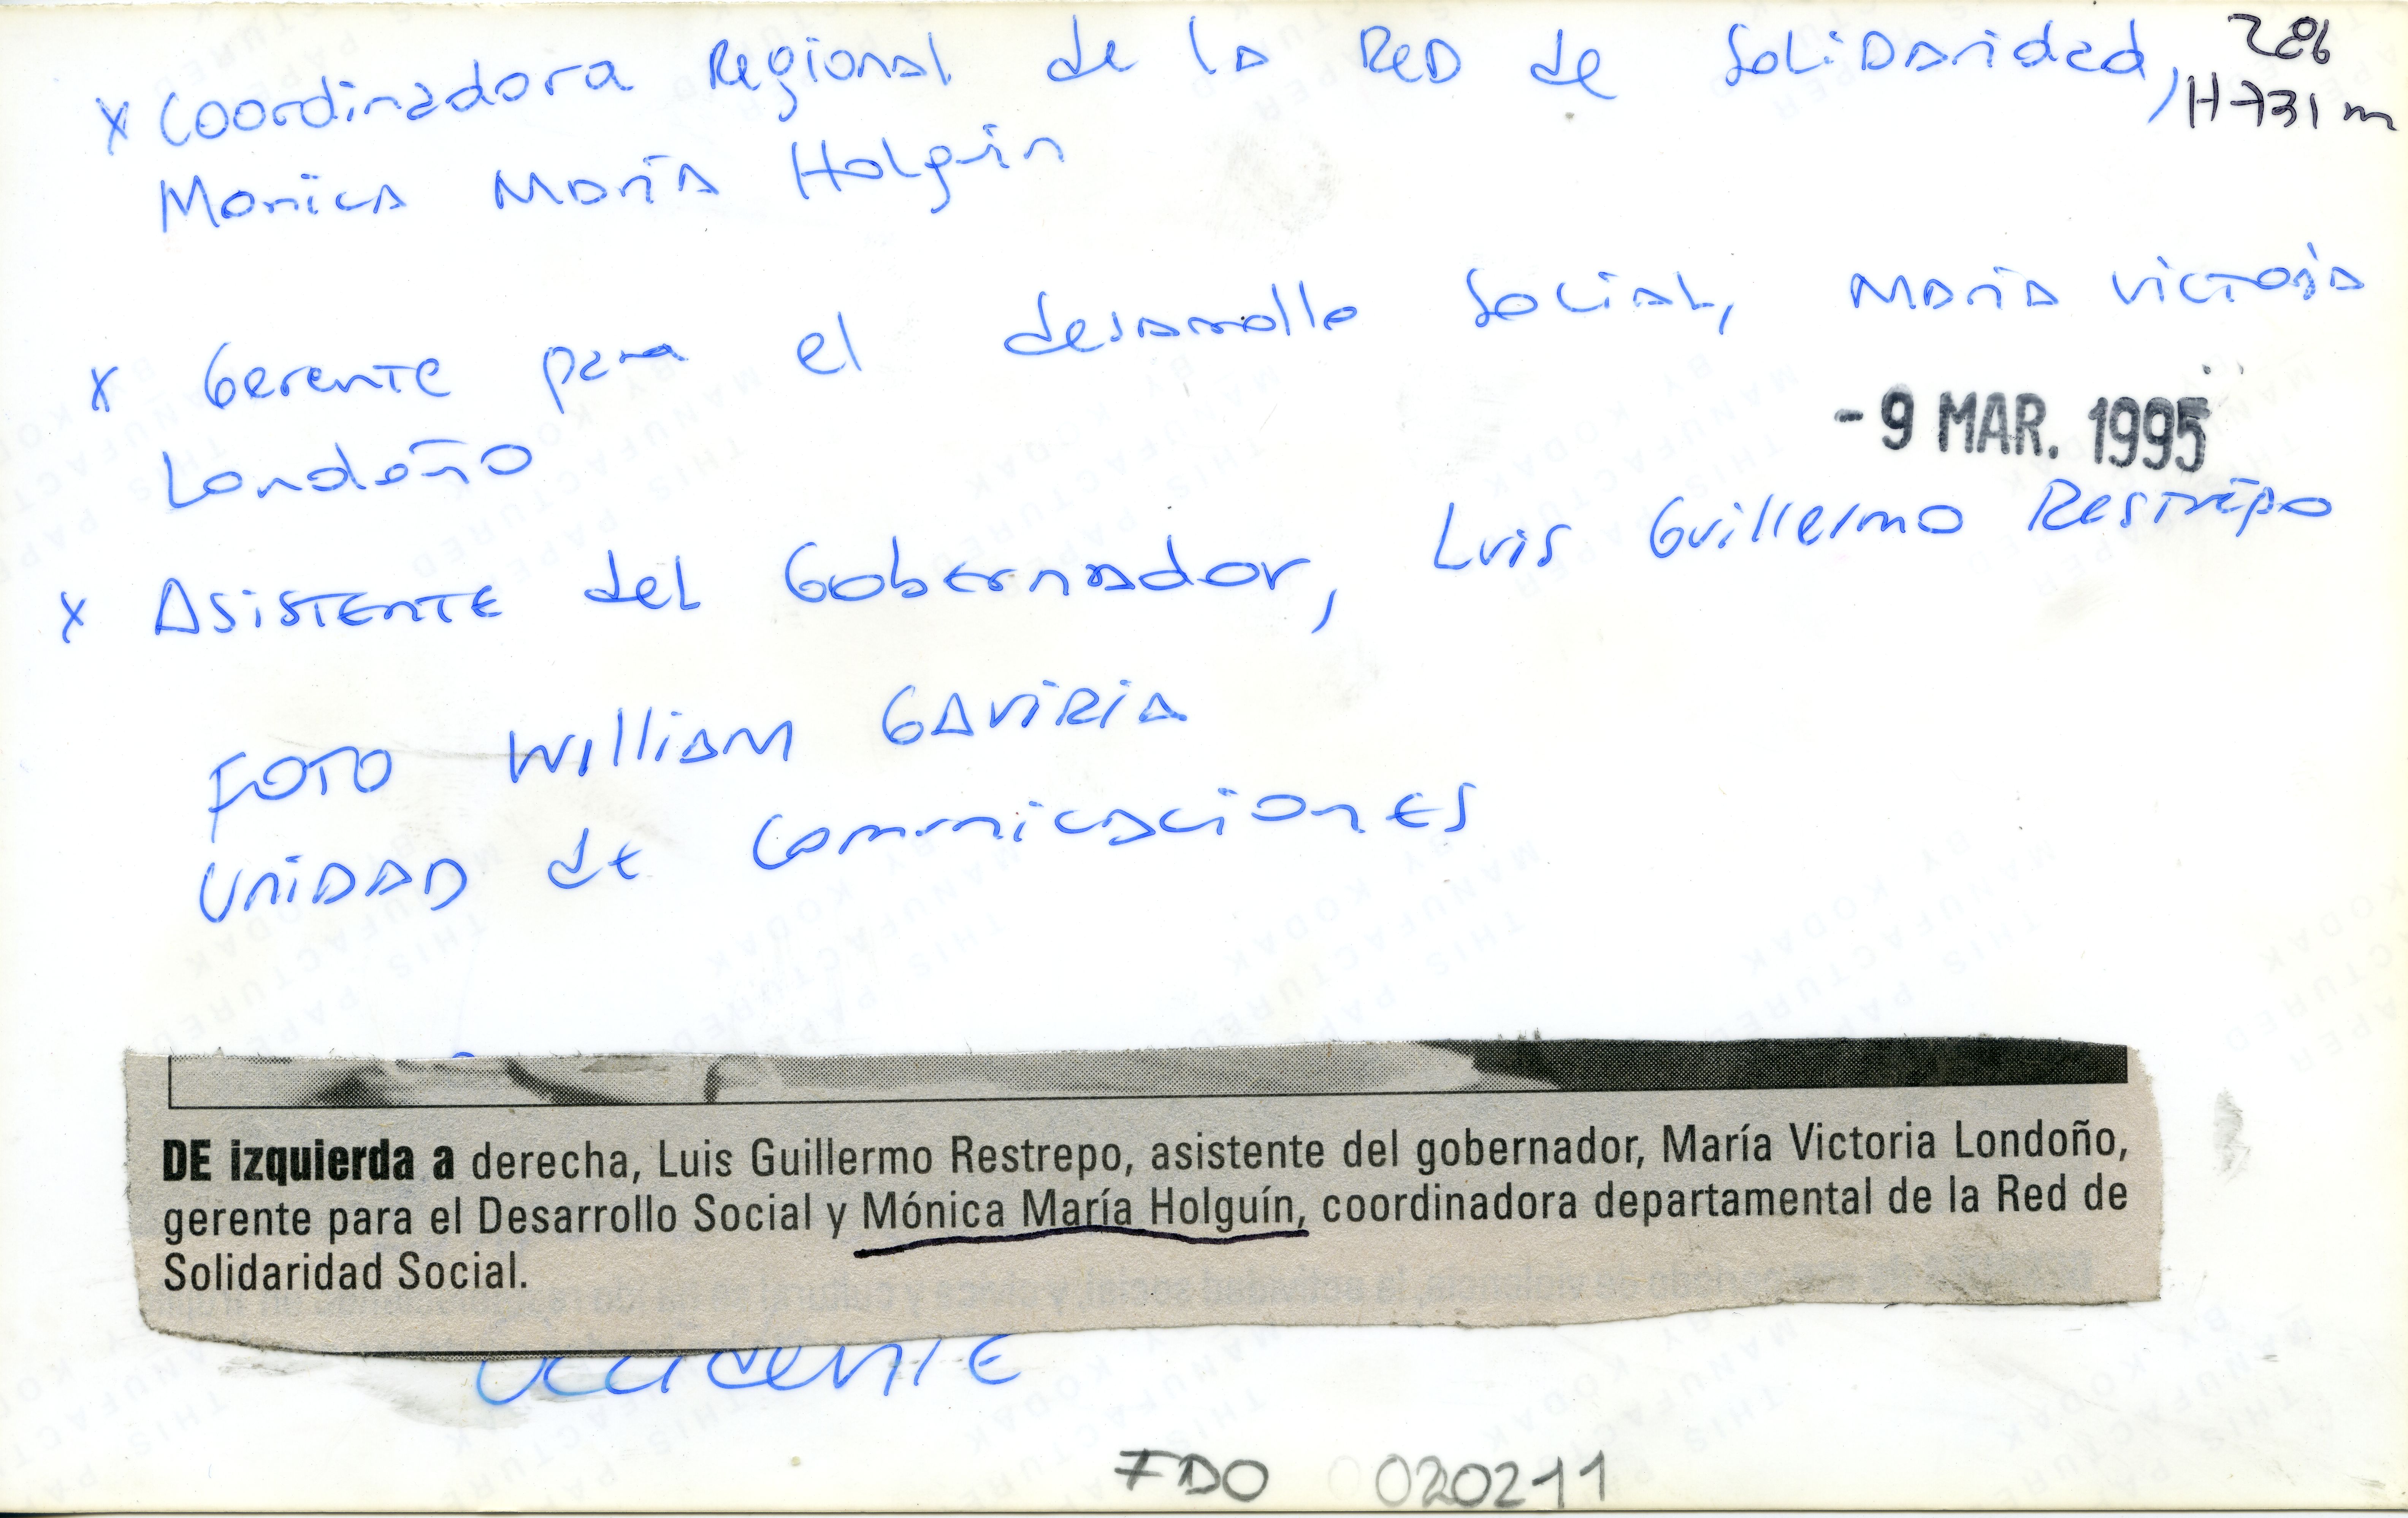 x Coordinadora Regional de la Red de Solidaridad,
286
H731m
Monica María Holguín
x Gerente para el desarrollo Social, María Victoria
- 9 MAR. 1995
Londoño
x Asistente del Gobernador, Luis Guillermo Restrepo
FOTO William GAVIRIA
UNIDAD de Comunicaciones
DE izquierda a derecha, Luis Guillermo Restrepo, asistente del gobernador, María Victoria Londoño,
gerente para el Desarrollo Social y Mónica María Holguín, coordinadora departamental de la Red de
Solidaridad Social.
Occidente
FDO 0020211
THIS PAPER
MANUFACTURED
BY KODAK